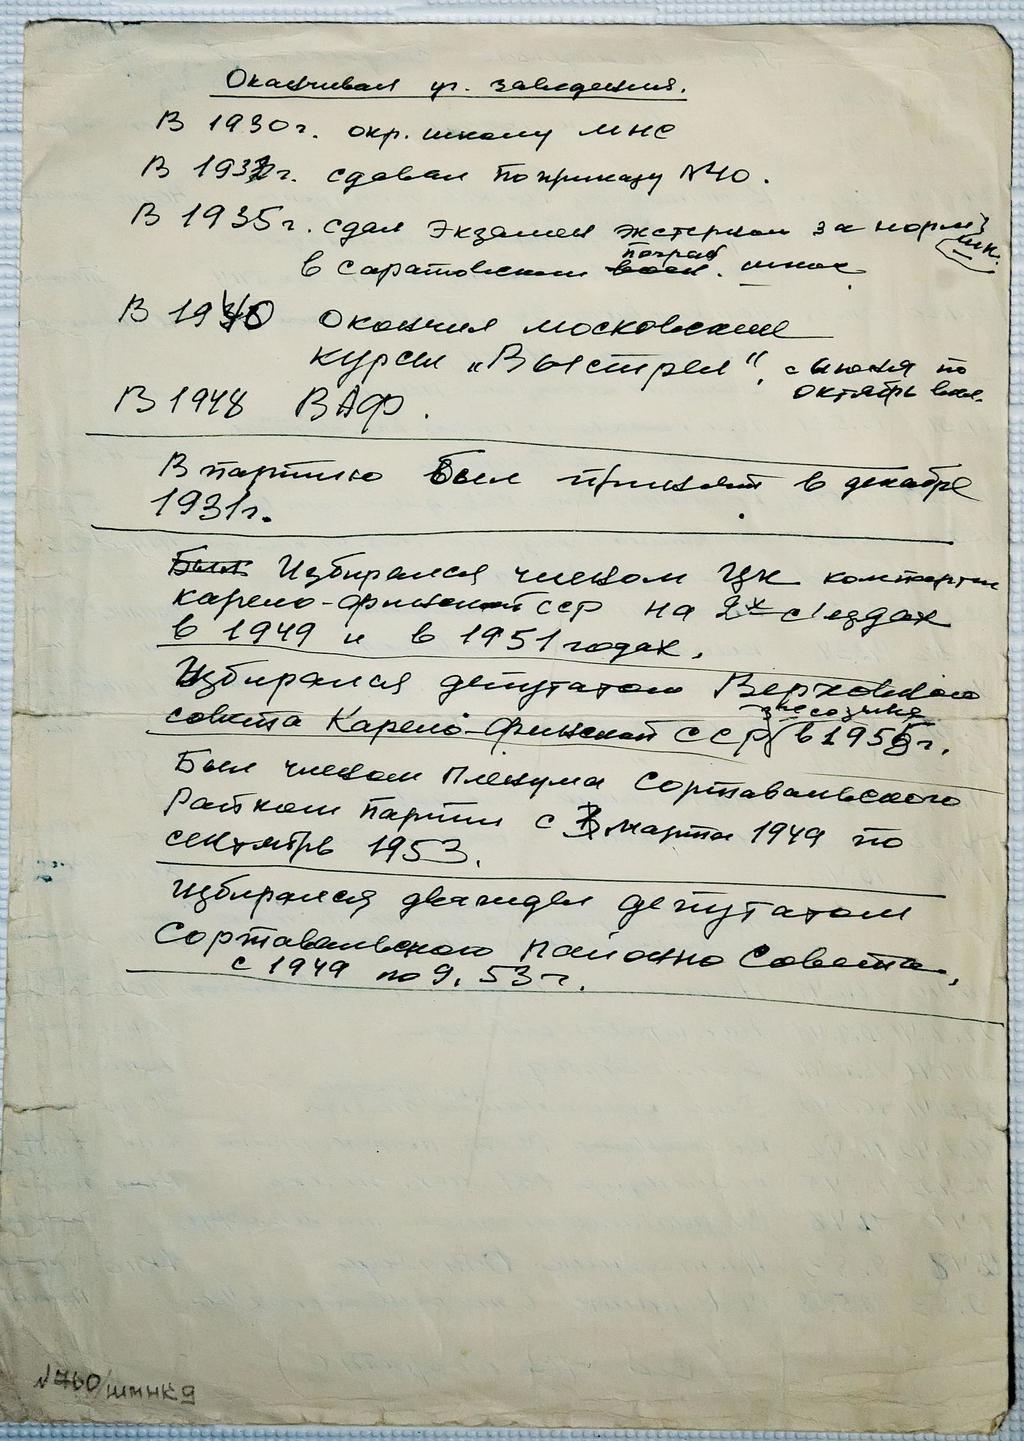 Оканчивал уч. заведения.
В 1930г. окр. школу МНС
В 1932г. сдавал по приказу №40.
В 1935г. сдал экзамен экстерном за норм.
шк.
погран
в Саратовском воен. школе
В 1940 окончил московские
курсы „Выстрел", с июня по
октябрь вкл.
В 1948 ВАФ.
В партию был принят в декабре
1931г.
Был Избирался членом ЦК компартии
Карело-финской ССР на 2х съездах
в 1949 и в 1951 годах.
Избирался депутатом Верховного
3го созыва
совета Карело-Финской ССР в 1955г.
Был членом Пленума Сортавальского
Райкома партии с марта 1949 по
сентябрь 1953.
Избирался дважды депутатом
Сортавальского районно Совета,
с 1949 по 9. 53г.
№760/шмнк9